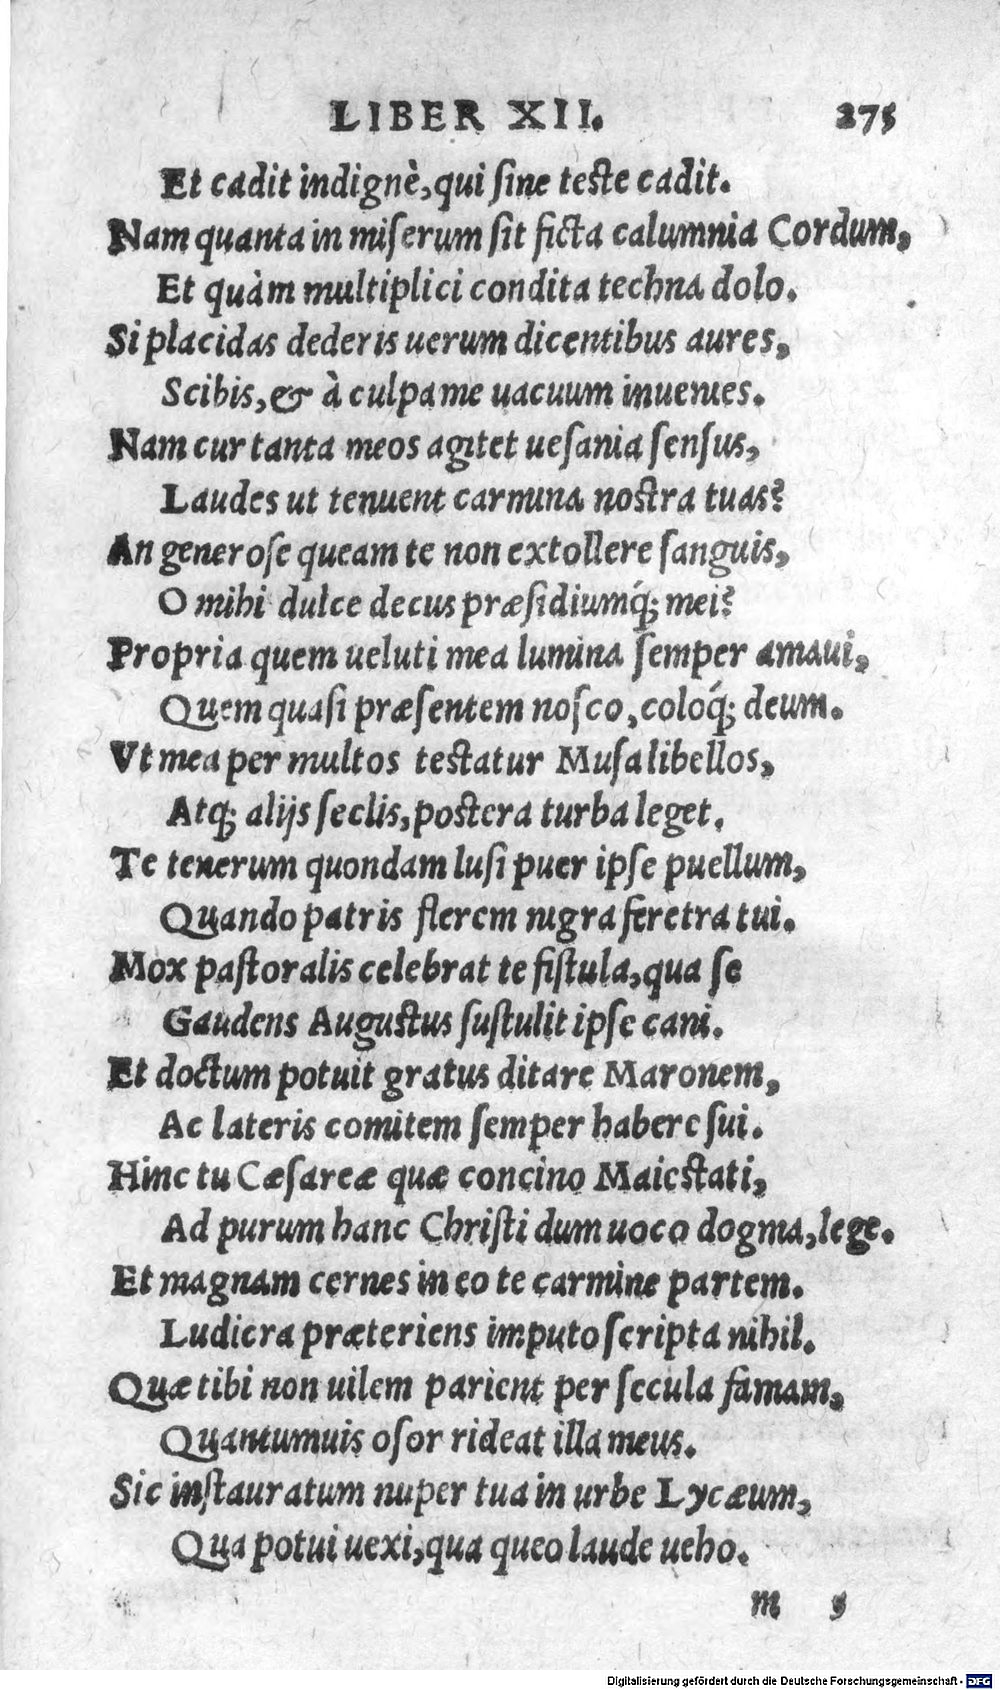 LIBER XII. 275
Et cadit indignè, qui sine teste cadit.
Nam quanta in miserum sit ficta calumnia Cordum,
Et quàm multiplici condita techna dolo.
Si placidas dederis uerum dicentibus aures,
Scibis, & à culpa me uacuum inuenies.
Nam cur tanta meos agitet uesania sensus,
Laudes ut tenuent carmina nostra tuas?
An generose queam te non extollere sanguis,
O mihi dulce decus præsidiumq́; mei?
Propria quem ueluti mea lumina semper amaui,
Quem quasi præsentem nosco, coloq́; deum.
Vt mea per multos testatur Musa libellos,
Atq; alijs seclis, postera turba leget.
Te tenerum quondam lusi puer ipse puellum,
Quando patris flerem nigra feretra tui.
Mox pastoralis celebrat te fistula, qua se
Gaudens Augustus sustulit ipse cani.
Et doctum potuit gratus ditare Maronem,
Ac lateris comitem semper habere sui.
Hinc tu Cæsareæ quæ concino Maiestati,
Ad purum hanc Christi dum uoco dogma, lege.
Et magnam cernes in eo te carmine partem.
Ludicra præteriens imputo scripta nihil.
Quæ tibi non uilem parient per secula famam,
Quantumuis osor rideat illa meus.
Sic instauratum nuper tua in urbe Lycæum,
Qua potui uexi, qua queo laude ueho.
m 5
Digitalisierung gefördert durch die Deutsche Forschungsgemeinschaft - DFG